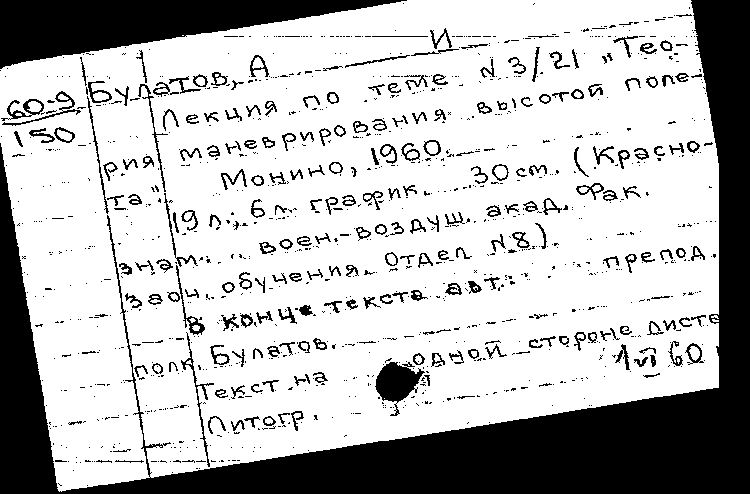 И
60-9 Булатов, А
150
Лекция по теме N 3/21 „Тео-
рия маневрирования высотой поле-
та". Монино, 1960.
19 л.; 6 л. график. 30 cm. (Красно-
знам. воен.-воздуш. акад. Фак.
заоч. обучения. Отдел N 8).
В конце текста авт.: препод.
полк. Булатов.
Текст на одной стороне листа
Литогр. 1 VI 60